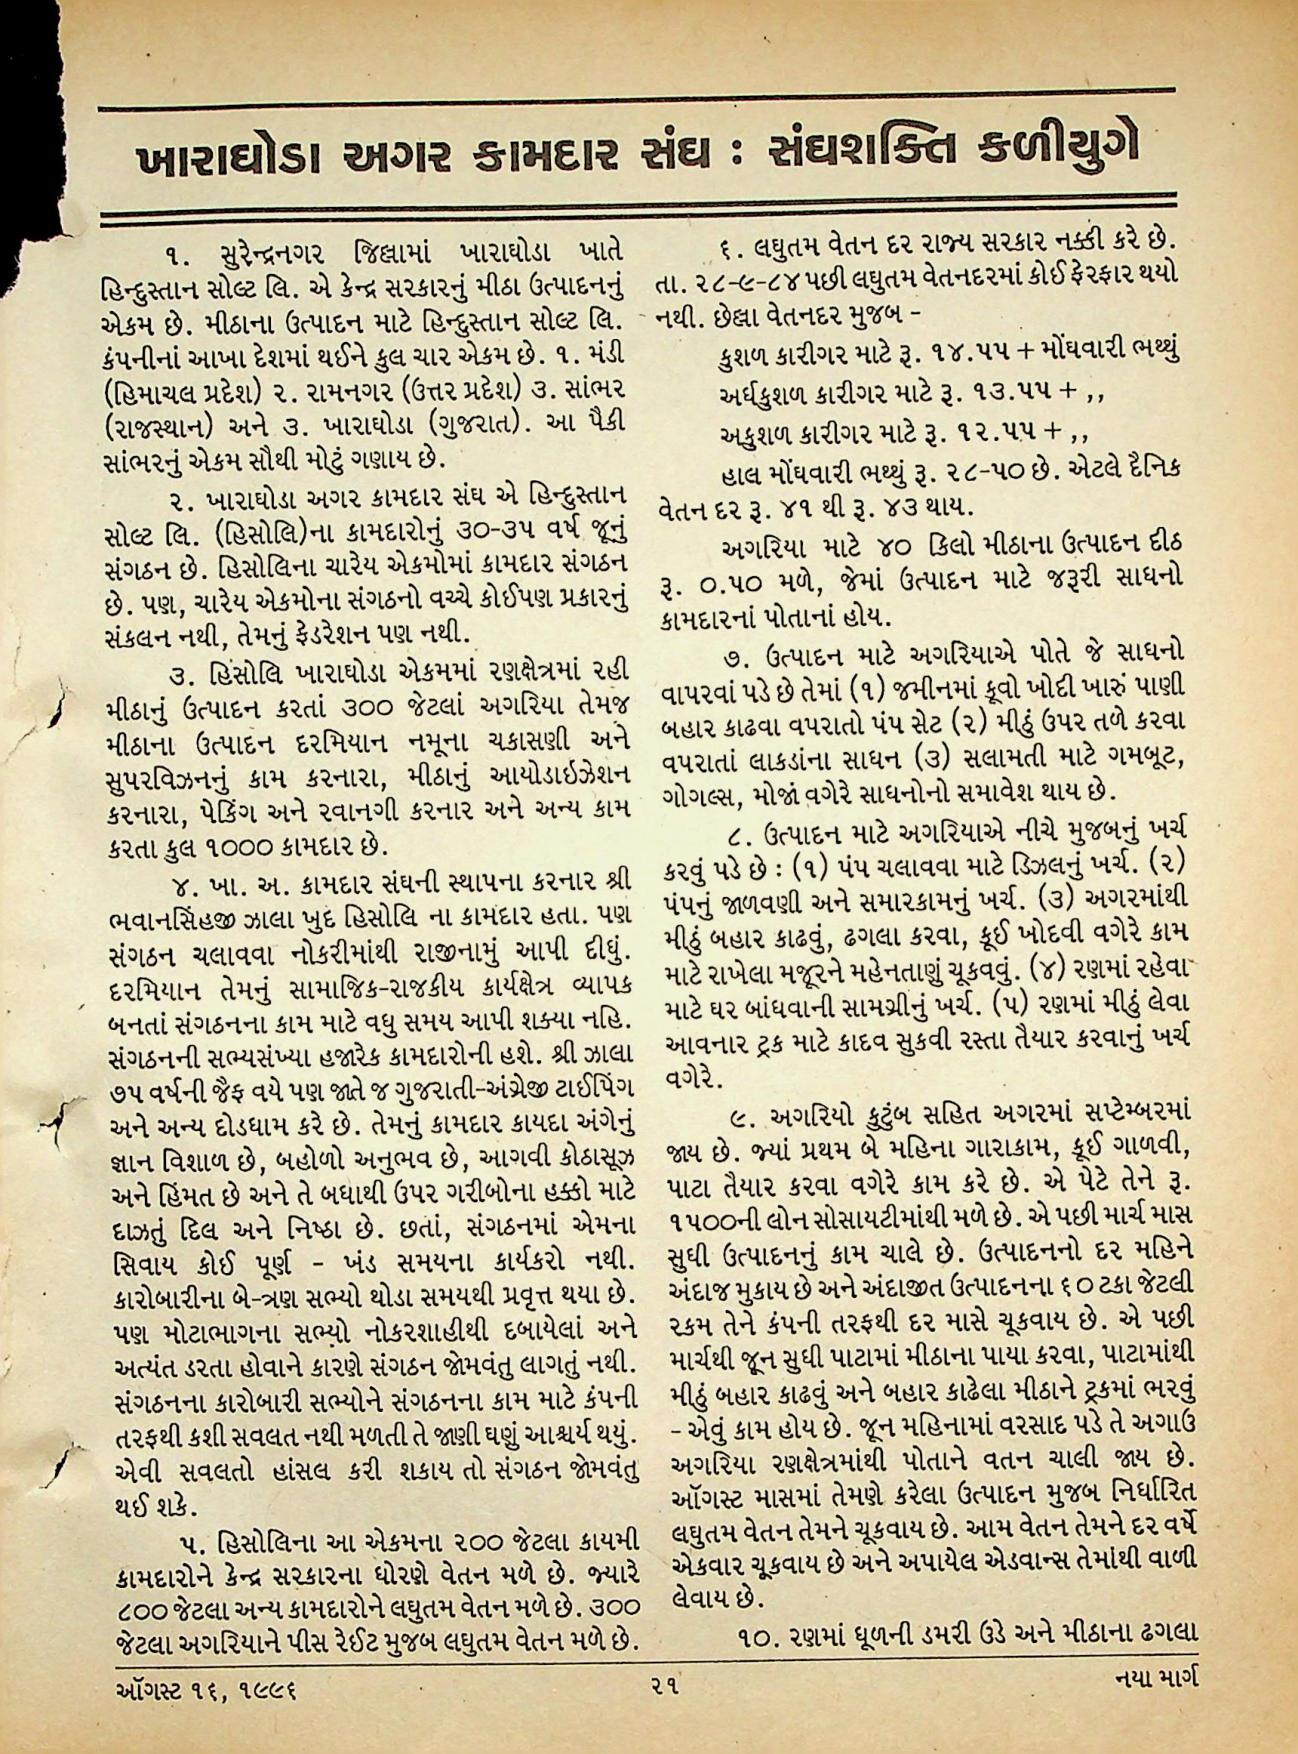 ખારાઘોડા અગર કામદાર સંઘ : સંઘશક્તિ કળીયુગે
૧. સુરેન્દ્રનગર જિલ્લામાં ખારાઘોડા ખાતે
હિન્દુસ્તાન સોલ્ટ લિ. એ કેન્દ્ર સરકારનું મીઠા ઉત્પાદનનું
એકમ છે. મીઠાના ઉત્પાદન માટે હિન્દુસ્તાન સોલ્ટ લિ.
કંપનીનાં આખા દેશમાં થઈને કુલ ચાર એકમ છે. ૧. મંડી
(હિમાચલ પ્રદેશ) ૨. રામનગર (ઉત્તર પ્રદેશ) ૩. સાંભર
(રાજસ્થાન) અને ૩. ખારાઘોડા (ગુજરાત). આ પૈકી
સાંભરનું એકમ સૌથી મોટું ગણાય છે.
૨. ખારાઘોડા અગર કામદાર સંઘ એ હિન્દુસ્તાન
સોલ્ટ લિ. (હિસોલિ)ના કામદારોનું ૩૦-૩૫ વર્ષ જૂનું
સંગઠન છે. હિસોલિના ચારેય એકમોમાં કામદાર સંગઠન
છે. પણ, ચારેય એકમોના સંગઠનો વચ્ચે કોઈપણ પ્રકારનું
સંકલન નથી, તેમનું ફેડરેશન પણ નથી.
૩. હિસોલિ ખારાઘોડા એકમમાં રણક્ષેત્રમાં રહી
મીઠાનું ઉત્પાદન કરતાં ૩૦૦ જેટલાં અગરિયા તેમજ
મીઠાના ઉત્પાદન દરમિયાન નમૂના ચકાસણી અને
સુપરવિઝનનું કામ કરનારા, મીઠાનું આયોડાઇઝેશન
કરનારા, પેકિંગ અને રવાનગી કરનાર અને અન્ય કામ
કરતા કુલ ૧૦૦૦ કામદાર છે.
૪. ખા. અ. કામદાર સંઘની સ્થાપના કરનાર શ્રી
ભવાનસિંહજી ઝાલા ખુદ હિસોલિ ના કામદાર હતા. પણ
સંગઠન ચલાવવા નોકરીમાંથી રાજીનામું આપી દીધું.
દરમિયાન તેમનું સામાજિક-રાજકીય કાર્યક્ષેત્ર વ્યાપક
બનતાં સંગઠનના કામ માટે વધુ સમય આપી શક્યા નહિ.
સંગઠનની સભ્યસંખ્યા હજારેક કામદારોની હશે. શ્રી ઝાલા
૭૫ વર્ષની જૈફ વયે પણ જાતે જ ગુજરાતી-અંગ્રેજી ટાઈપિંગ
અને અન્ય દોડધામ કરે છે. તેમનું કામદાર કાયદા અંગેનું
જ્ઞાન વિશાળ છે, બહોળો અનુભવ છે, આગવી કોઠાસૂઝ
અને હિંમત છે અને તે બધાથી ઉપર ગરીબોના હક્કો માટે
દાઝતું દિલ અને નિષ્ઠા છે. છતાં, સંગઠનમાં એમના
સિવાય કોઈ પૂર્ણ - ખંડ સમયના કાર્યકરો નથી.
કારોબારીના બે-ત્રણ સભ્યો થોડા સમયથી પ્રવૃત્ત થયા છે.
પણ મોટાભાગના સભ્યો નોકરશાહીથી દબાયેલાં અને
અત્યંત ડરતા હોવાને કારણે સંગઠન જોમવંતુ લાગતું નથી.
સંગઠનના કારોબારી સભ્યોને સંગઠનના કામ માટે કંપની
તરફથી કશી સવલત નથી મળતી તે જાણી ઘણું આશ્ચર્ય થયું.
એવી સવલતો હાંસલ કરી શકાય તો સંગઠન જોમવંતુ
થઈ શકે.
૫. હિસોલિના આ એકમના ૨૦૦ જેટલા કાયમી
કામદારોને કેન્દ્ર સરકારના ધોરણે વેતન મળે છે. જ્યારે
૮૦૦ જેટલા અન્ય કામદારોને લઘુતમ વેતન મળે છે. ૩૦૦
જેટલા અગરિયાને પીસ રેઈટ મુજબ લઘુતમ વેતન મળે છે.
૬. લઘુતમ વેતન દર રાજ્ય સરકાર નક્કી કરે છે.
તા. ૨૮-૯-૮૪ પછી લઘુતમ વેતનદરમાં કોઈ ફેરફાર થયો
નથી. છેલ્લા વેતનદર મુજબ -
કુશળ કારીગર માટે રૂ. ૧૪.૫૫ + મોંઘવારી ભથ્થું
અર્ધકુશળ કારીગર માટે રૂ. ૧૩.૫૫ + ,,
અકુશળ કારીગર માટે રૂ. ૧૨.૫૫ + ,,
હાલ મોંઘવારી ભથ્થું રૂ. ૨૮-૫૦ છે. એટલે દૈનિક
વેતન દર રૂ. ૪૧ થી રૂ. ૪૩ થાય.
અગરિયા માટે ૪૦ કિલો મીઠાના ઉત્પાદન દીઠ
રૂ. ૦.૫૦ મળે, જેમાં ઉત્પાદન માટે જરૂરી સાધનો
કામદારનાં પોતાનાં હોય.
૭. ઉત્પાદન માટે અગરિયાએ પોતે જે સાધનો
વાપરવાં પડે છે તેમાં (૧) જમીનમાં કૂવો ખોદી ખારું પાણી
બહાર કાઢવા વપરાતો પંપ સેટ (૨) મીઠું ઉપર તળે કરવા
વપરાતાં લાકડાંના સાધન (૩) સલામતી માટે ગમબૂટ,
ગોગલ્સ, મોજાં વગેરે સાધનોનો સમાવેશ થાય છે.
૮. ઉત્પાદન માટે અગરિયાએ નીચે મુજબનું ખર્ચ
કરવું પડે છે : (૧) પંપ ચલાવવા માટે ડિઝલનું ખર્ચ. (૨)
પંપનું જાળવણી અને સમારકામનું ખર્ચ. (૩) અગરમાંથી
મીઠું બહાર કાઢવું, ઢગલા કરવા, કૂઈ ખોદવી વગેરે કામ
માટે રાખેલા મજૂરને મહેનતાણું ચૂકવવું. (૪) રણમાં રહેવા
માટે ઘર બાંધવાની સામગ્રીનું ખર્ચ. (૫) રણમાં મીઠું લેવા
આવનાર ટ્રક માટે કાદવ સુકવી રસ્તા તૈયાર કરવાનું ખર્ચ
વગેરે.
૯. અગરિયો કુટુંબ સહિત અગરમાં સપ્ટેમ્બરમાં
જાય છે. જ્યાં પ્રથમ બે મહિના ગારાકામ, કૂઈ ગાળવી,
પાટા તૈયાર કરવા વગેરે કામ કરે છે. એ પેટે તેને રૂ.
૧૫૦૦ની લોન સોસાયટીમાંથી મળે છે. એ પછી માર્ચ માસ
સુધી ઉત્પાદનનું કામ ચાલે છે. ઉત્પાદનનો દર મહિને
અંદાજ મુકાય છે અને અંદાજીત ઉત્પાદનના ૬૦ ટકા જેટલી
રકમ તેને કંપની તરફથી દર માસે ચૂકવાય છે. એ પછી
માર્ચથી જૂન સુધી પાટામાં મીઠાના પાયા કરવા, પાટામાંથી
મીઠું બહાર કાઢવું અને બહાર કાઢેલા મીઠાને ટ્રકમાં ભરવું
- એવું કામ હોય છે. જૂન મહિનામાં વરસાદ પડે તે અગાઉ
અગરિયા રણક્ષેત્રમાંથી પોતાને વતન ચાલી જાય છે.
ઑગસ્ટ માસમાં તેમણે કરેલા ઉત્પાદન મુજબ નિર્ધારિત
લઘુતમ વેતન તેમને ચૂકવાય છે. આમ વેતન તેમને દર વર્ષે
એકવાર ચૂકવાય છે અને અપાયેલ એડવાન્સ તેમાંથી વાળી
લેવાય છે.
૧૦. રણમાં ધૂળની ડમરી ઉડે અને મીઠાના ઢગલા
ઑગસ્ટ ૧૬, ૧૯૯૬
૨૧
નયા માર્ગ